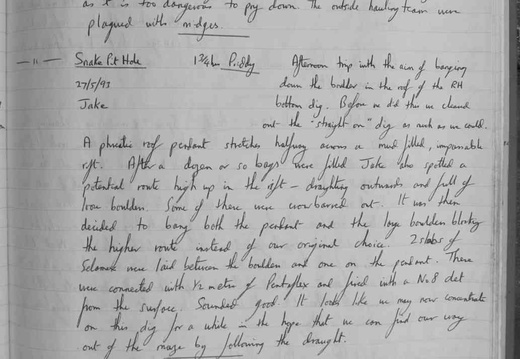 as it is too dangerous to pry down. The outside hauling team were
plagued with midges.
— " — Snake Pit Hole 1¾hr Priddy Afternoon trip with the aim of banging
27/5/93 down the boulder in the roof of the RH
Jake bottom dig. Before we did this we cleared
out the "straight on" dig as much as we could.
A phreatic roof pendant stretches halfway across a mud filled, impassable
rift. After a dozen or so bags were filled Jake also spotted a
potential route high up in the rift - draughting outwards and full of
loose boulders. Some of these were crowbarred out. It was then
decided to bang both the pendant and the large boulders blocking
the higher route instead of our original choice. 2 slabs of
Selamex were laid between the boulders and one on the pendant. These
were connected with ½ metre of Pentaflex and fired with a No8 det
from the surface. Sounded good. It looks like we may now concentrate
on this dig for a while in the hope that we can find our way
out of the maze by following the draught.